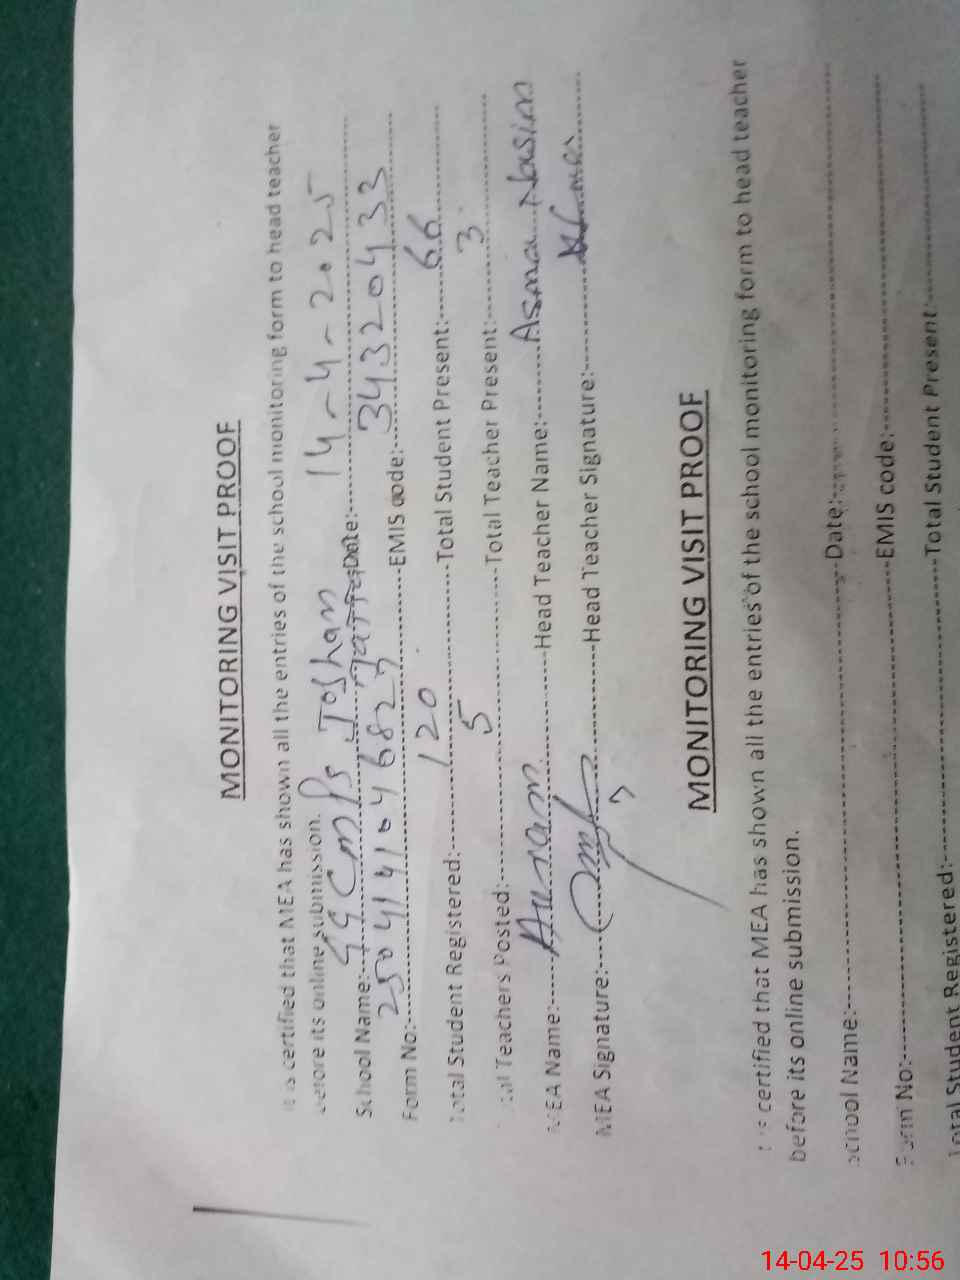 MONITORING VISIT PROOF
is certified that MEA has shown all the entries of the school monitoring form to head teacher
before its online submission.
School Name:- GGCMPS Joshan Date:- 14-4-2025
Form No:- 250414104682 EMIS code:- 34320433
Total Student Registered:- 120 Total Student Present:- 66
Teachers Posted:- 5 Total Teacher Present:- 3
MEA Name:- Head Teacher Name:- Asma Nasim
MEA Signature:- Head Teacher Signature:- Asma
MONITORING VISIT PROOF
certified that MEA has shown all the entries of the school monitoring form to head teacher
before its online submission.
School Name:- Date:-
Form No:- EMIS code:-
Total Student Registered:- Total Student Present:-
14-04-25 10:56